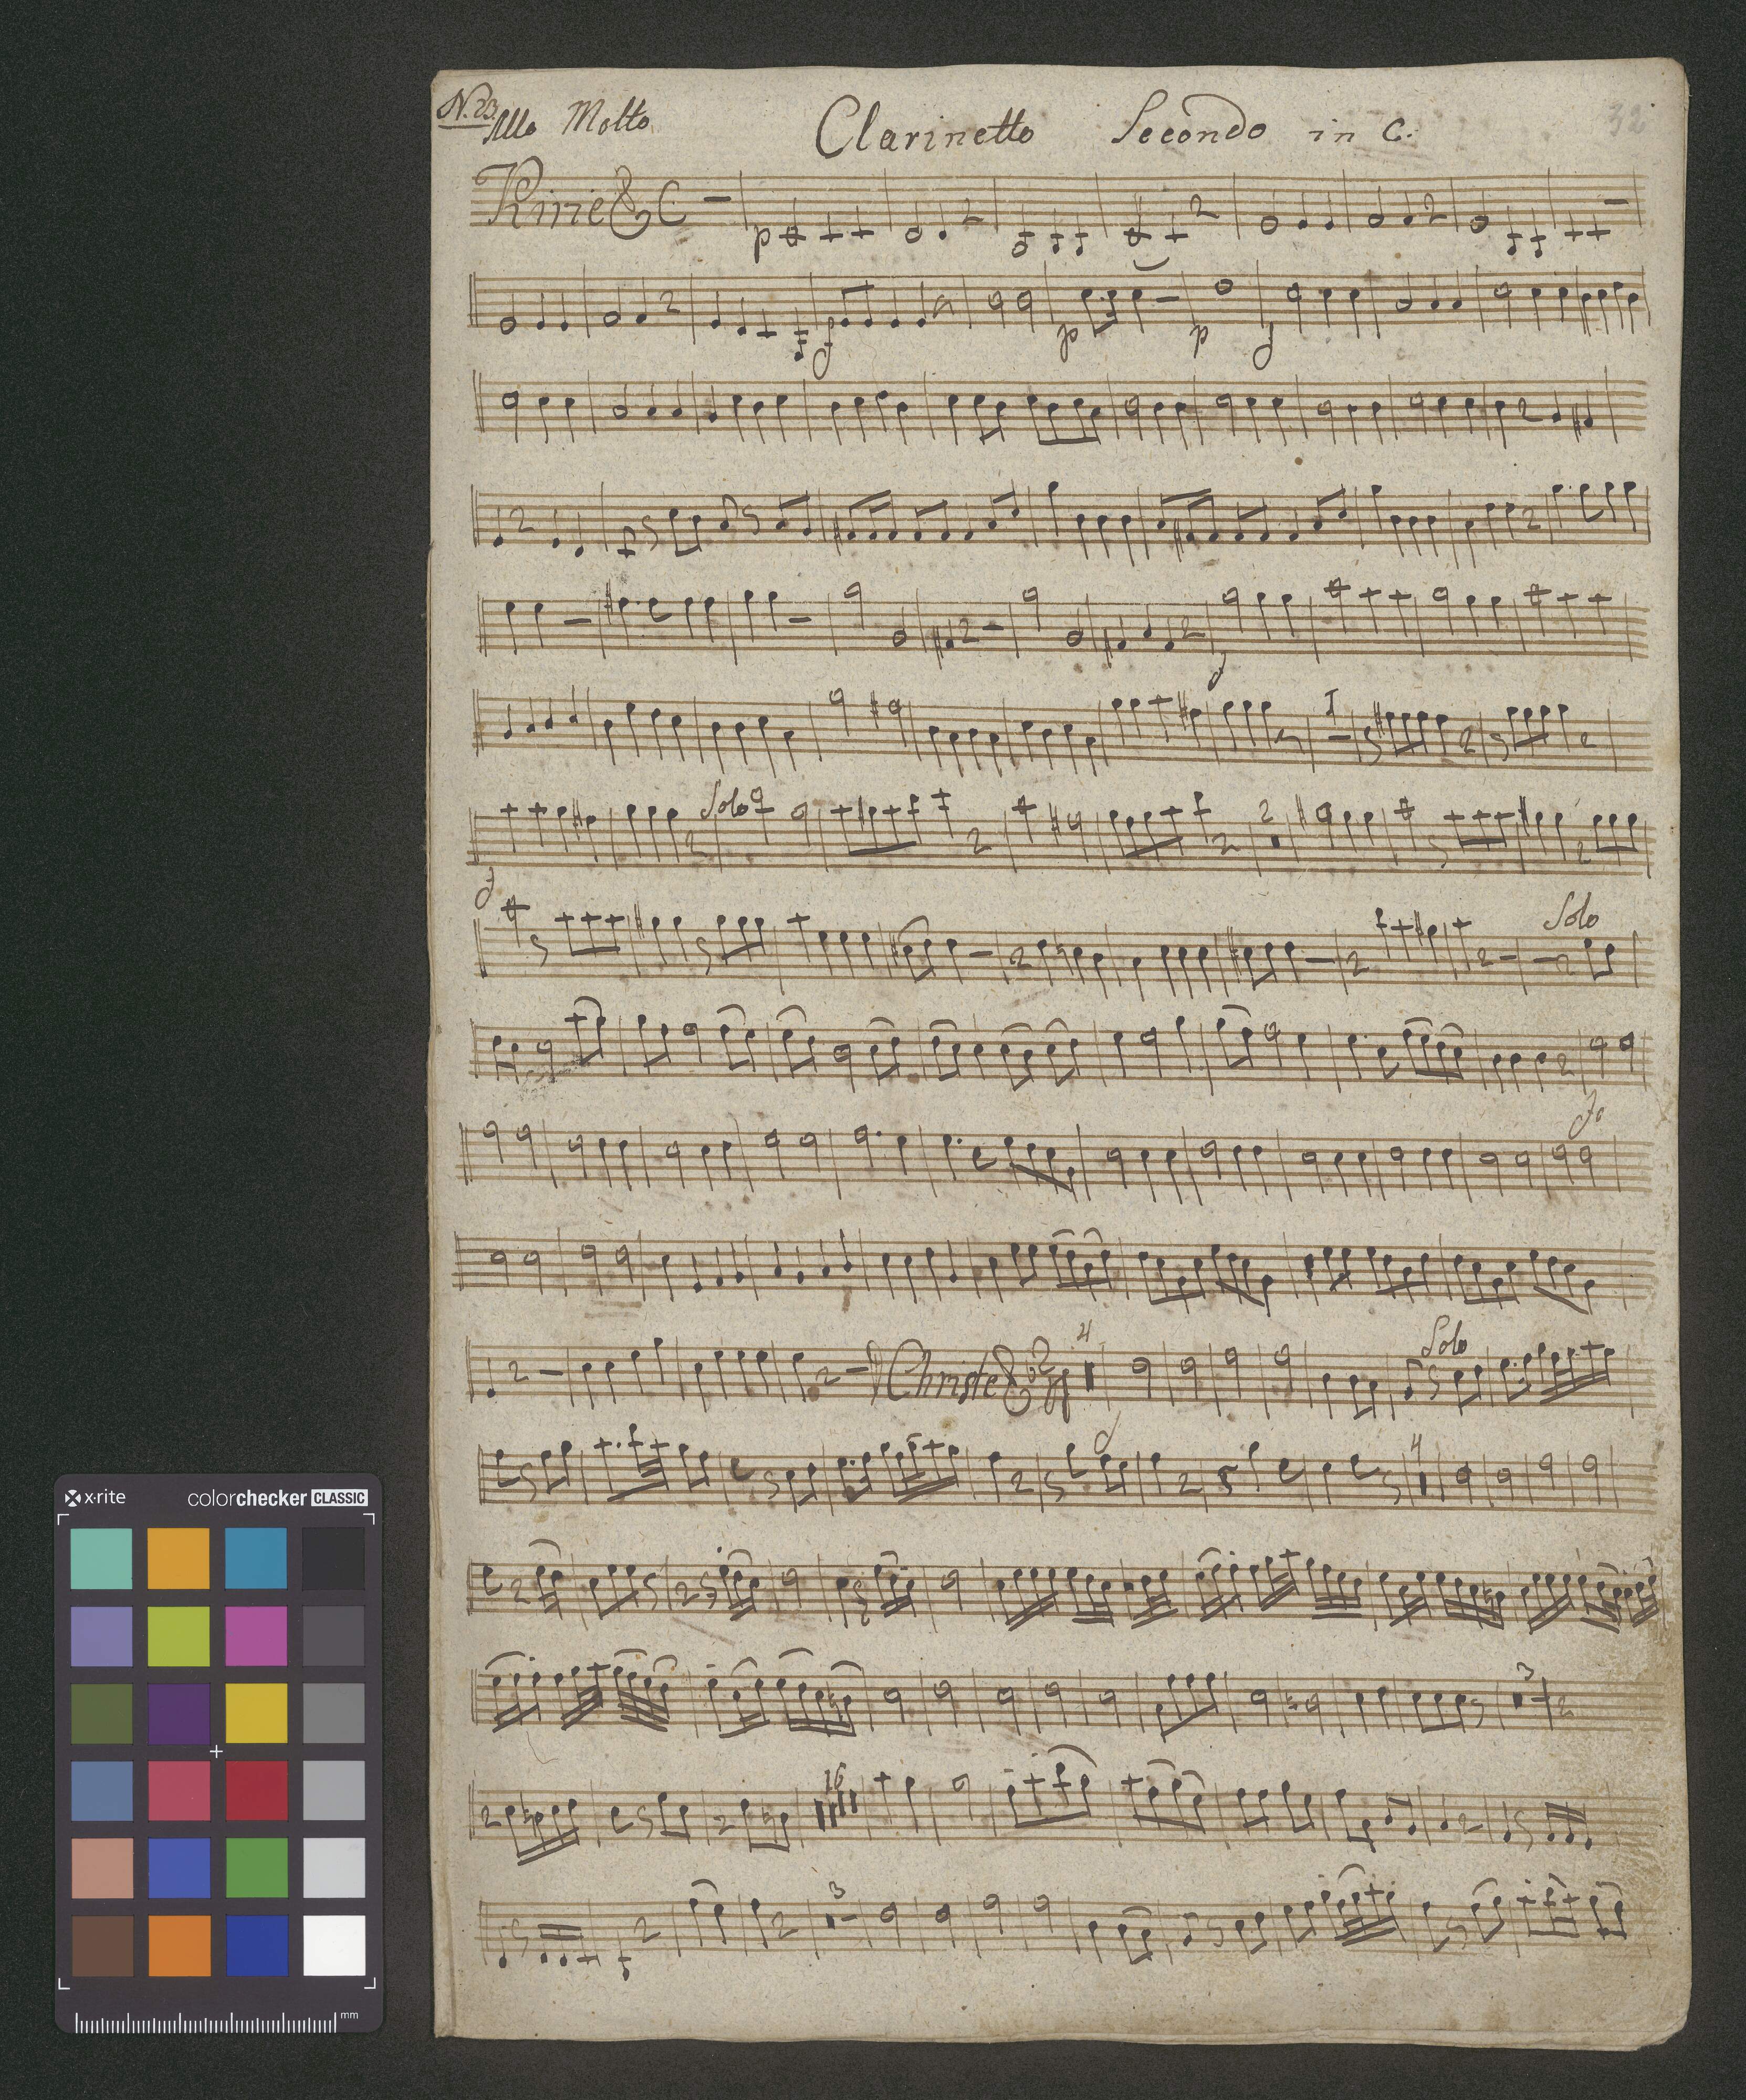 N. 23.
Allo Molto
Clarinetto Secondo in C.
32
Kirie C
p
f p p f
f
Solo 2
f
Solo
fo
Solo
Christe 2/4 4
f 4
3
16
3
x-rite colorchecker CLASSIC
mm